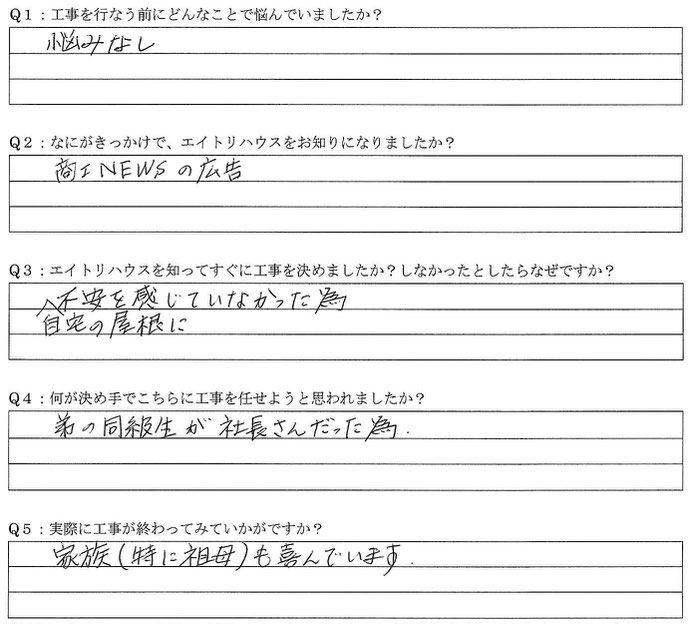 Q1：工事を行なう前にどんなことで悩んでいましたか？
悩みなし
Q2：なにがきっかけで、エイトリハウスをお知りになりましたか？
商工NEWSの広告
Q3：エイトリハウスを知ってすぐに工事を決めましたか？しなかったとしたらなぜですか？
不安を感じていなかった為
自宅の屋根に
Q4：何が決め手でこちらに工事を任せようと思われましたか？
弟の同級生が社長さんだった為.
Q5：実際に工事が終わってみていかがですか？
家族(特に祖母)も喜んでいます.